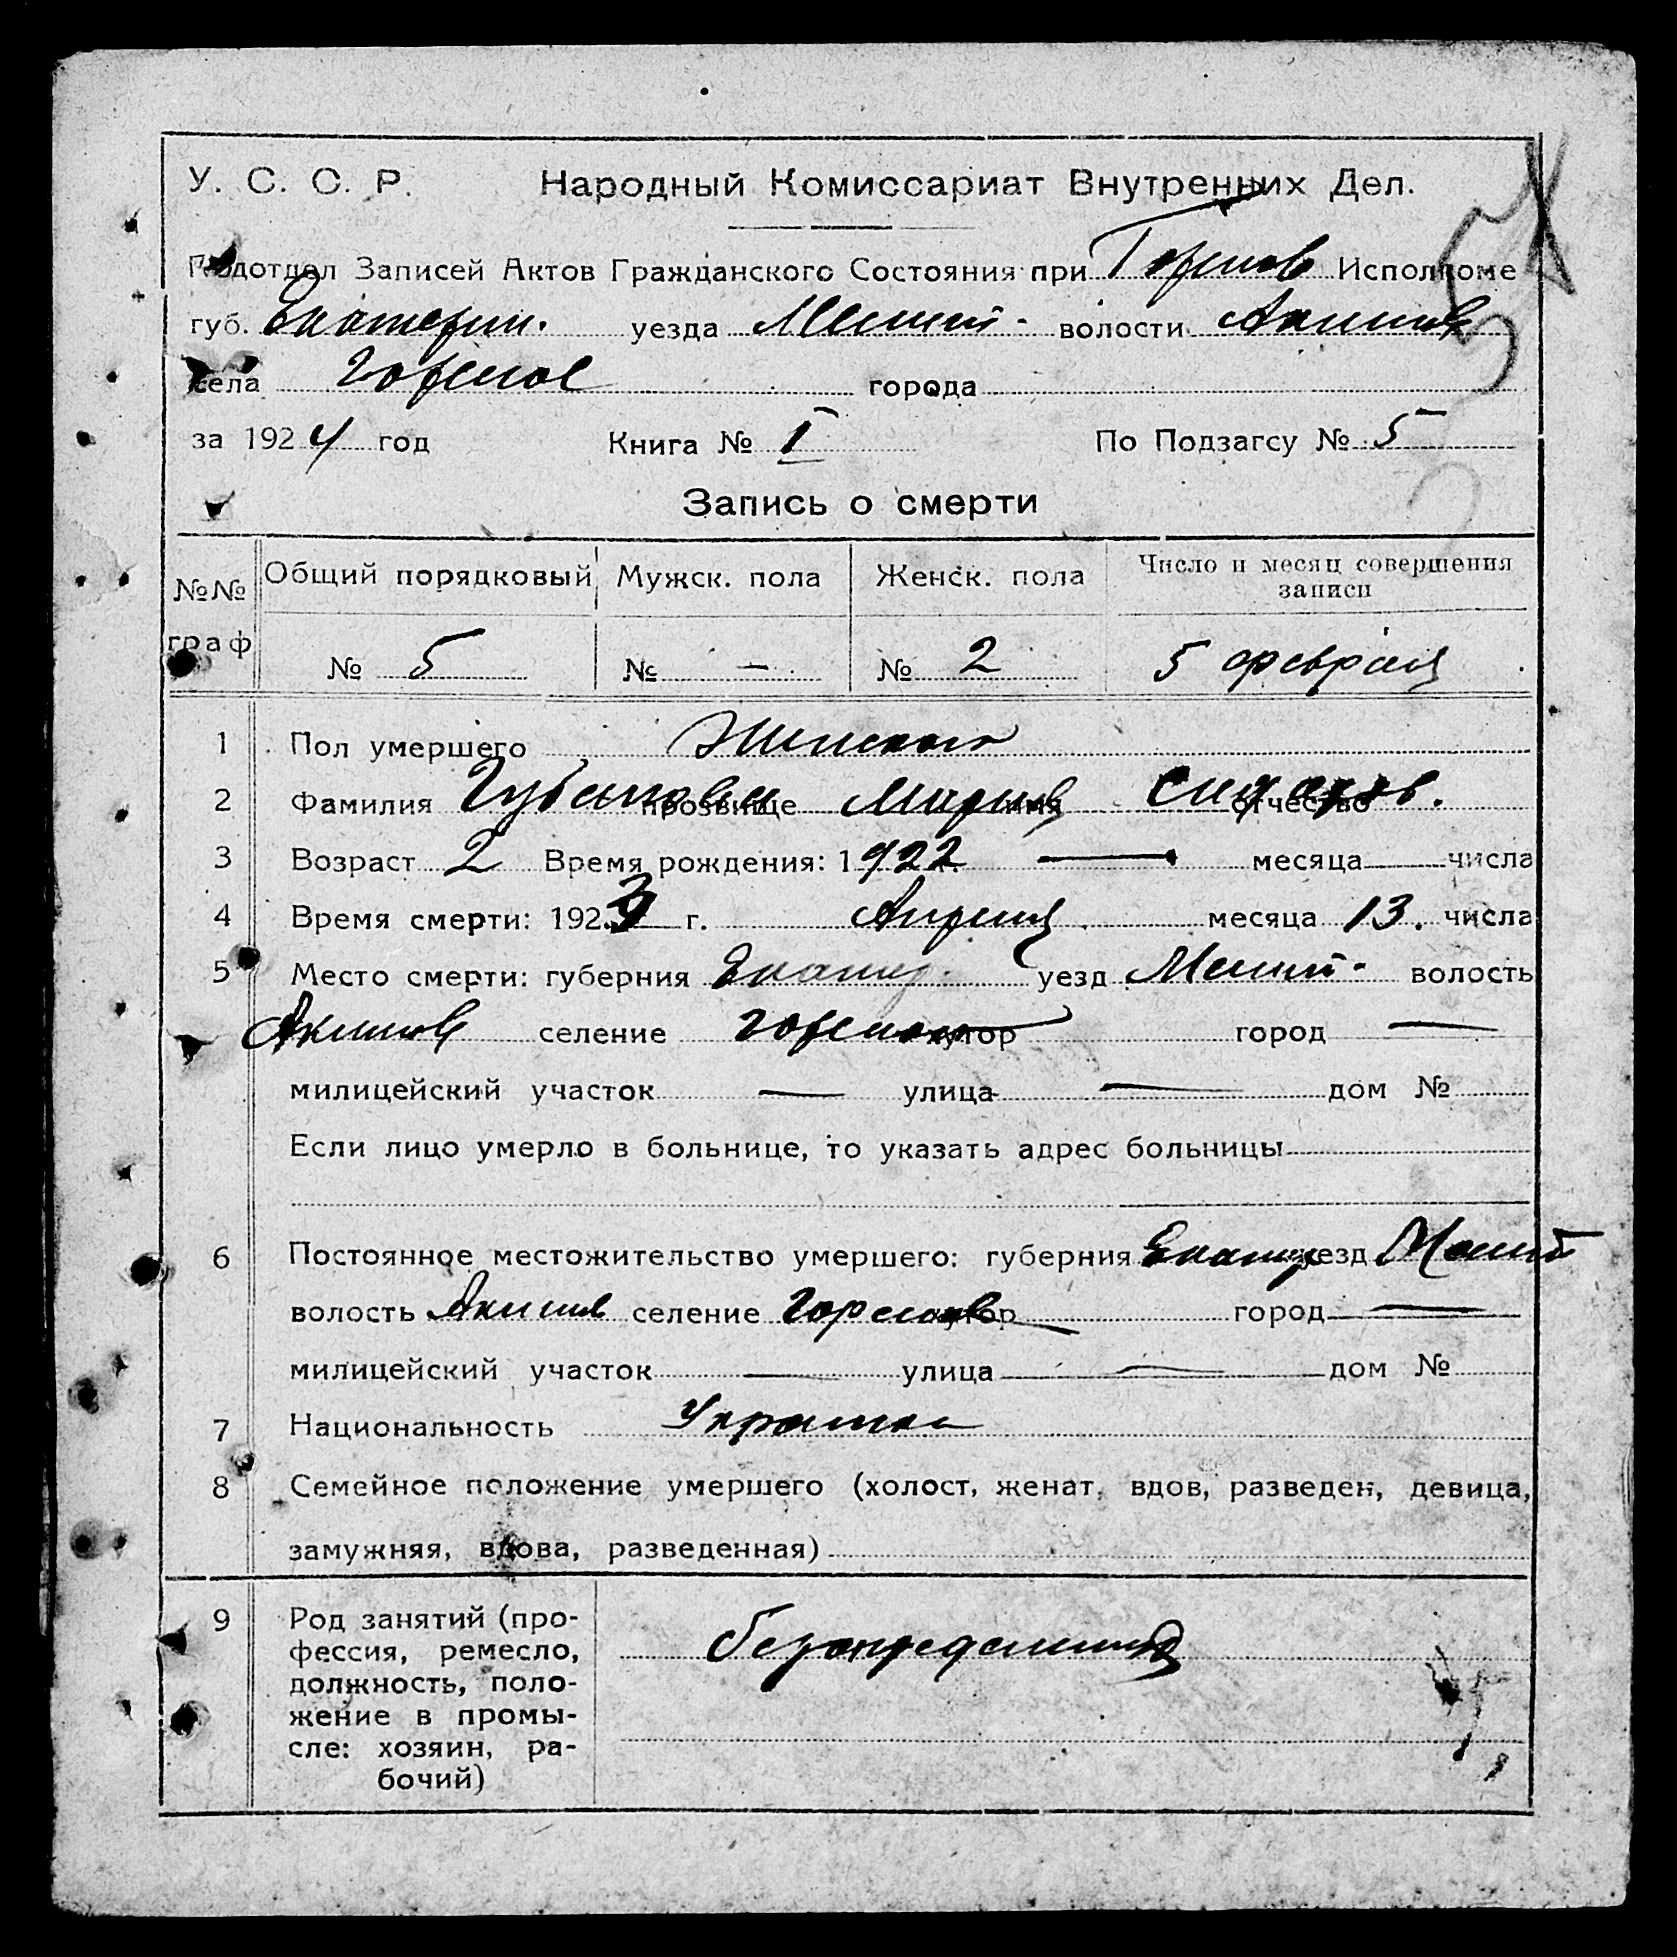 У. С. С. Р. Народный Комиссариат Внутренних Дел.
Подотдел Записей Актов Гражданского Состояния при Исполкоме
губ. Екатерин. уезда Мелит. волости Акимов
села Горелое города
за 1924 год Книга № I По Подзагсу № 5
Запись о смерти
№№ граф Общий порядковый Мужск. пола Женск. пола Число и месяц совершения записи
№ 5 № — № 2 5 февраля
1 Пол умершего Женского
2 Фамилия прозвище имя отчество
3 Возраст 2 Время рождения: 1922 — месяца числа
4 Время смерти: 1923 г. Апреля месяца 13. числа
5 Место смерти: губерния Екатер. уезд Мелит. волость
Акимов селение Горелое хутор город —
милицейский участок — улица — дом №
Если лицо умерло в больнице, то указать адрес больницы
6 Постоянное местожительство умершего: губерния Екатер уезд Мелит
волость Акимов селение Горелов хутор город —
милицейский участок — улица — дом №
7 Национальность Украинка
8 Семейное положение умершего (холост, женат, вдов, разведен, девица,
замужняя, вдова, разведенная)
9 Род занятий (про-
фессия, ремесло,
должность, поло-
жение в промы-
сле: хозяин, ра-
бочий)